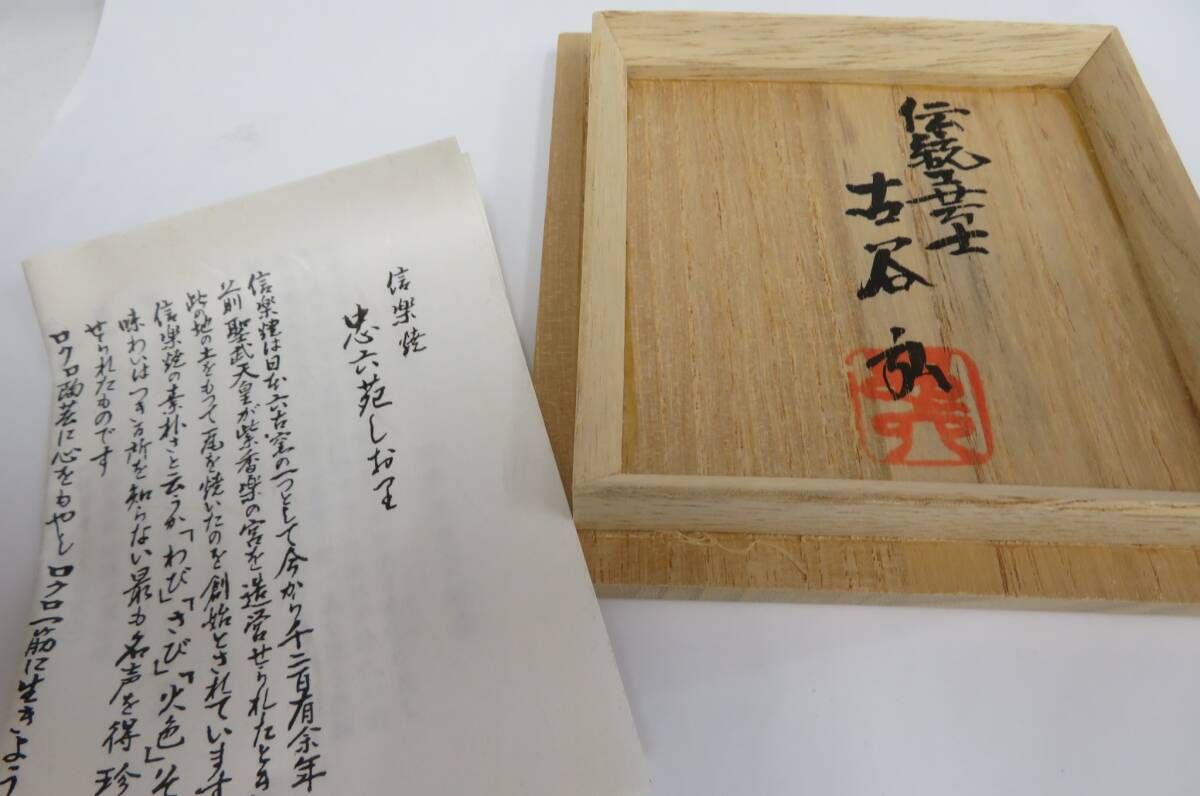 信楽焼
忠六苑しおり
信楽焼は日本六古窯の一つとして今から千二百有余年
前聖武天皇が紫香楽の宮を造営せられたとき
此の地の土をもって瓦を焼いたのを創始とされています
信楽焼の素朴さと云うか「わび」「さび」「火色」そ
味わいはつきる所を知らない最も名声を得珍
せられたものです
ロクロ陶芸に心をもやしロクロ一筋に生きよう
伝統工芸士
古谷